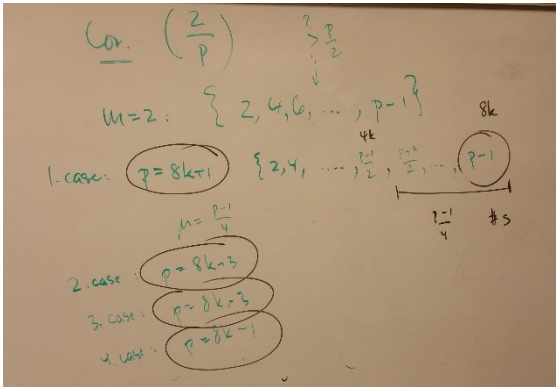 Cor. (2/p) ? > p/2
m=2: { 2, 4, 6, ..., p-1 }
4k 8k
1. case: p = 8k+1 { 2, 4, ...., p-1/2, ..., p-1
p-1/4 #s
μ = p-1/4
2. case: p = 8k+3
3. case: p = 8k-3
4. case: p = 8k-1